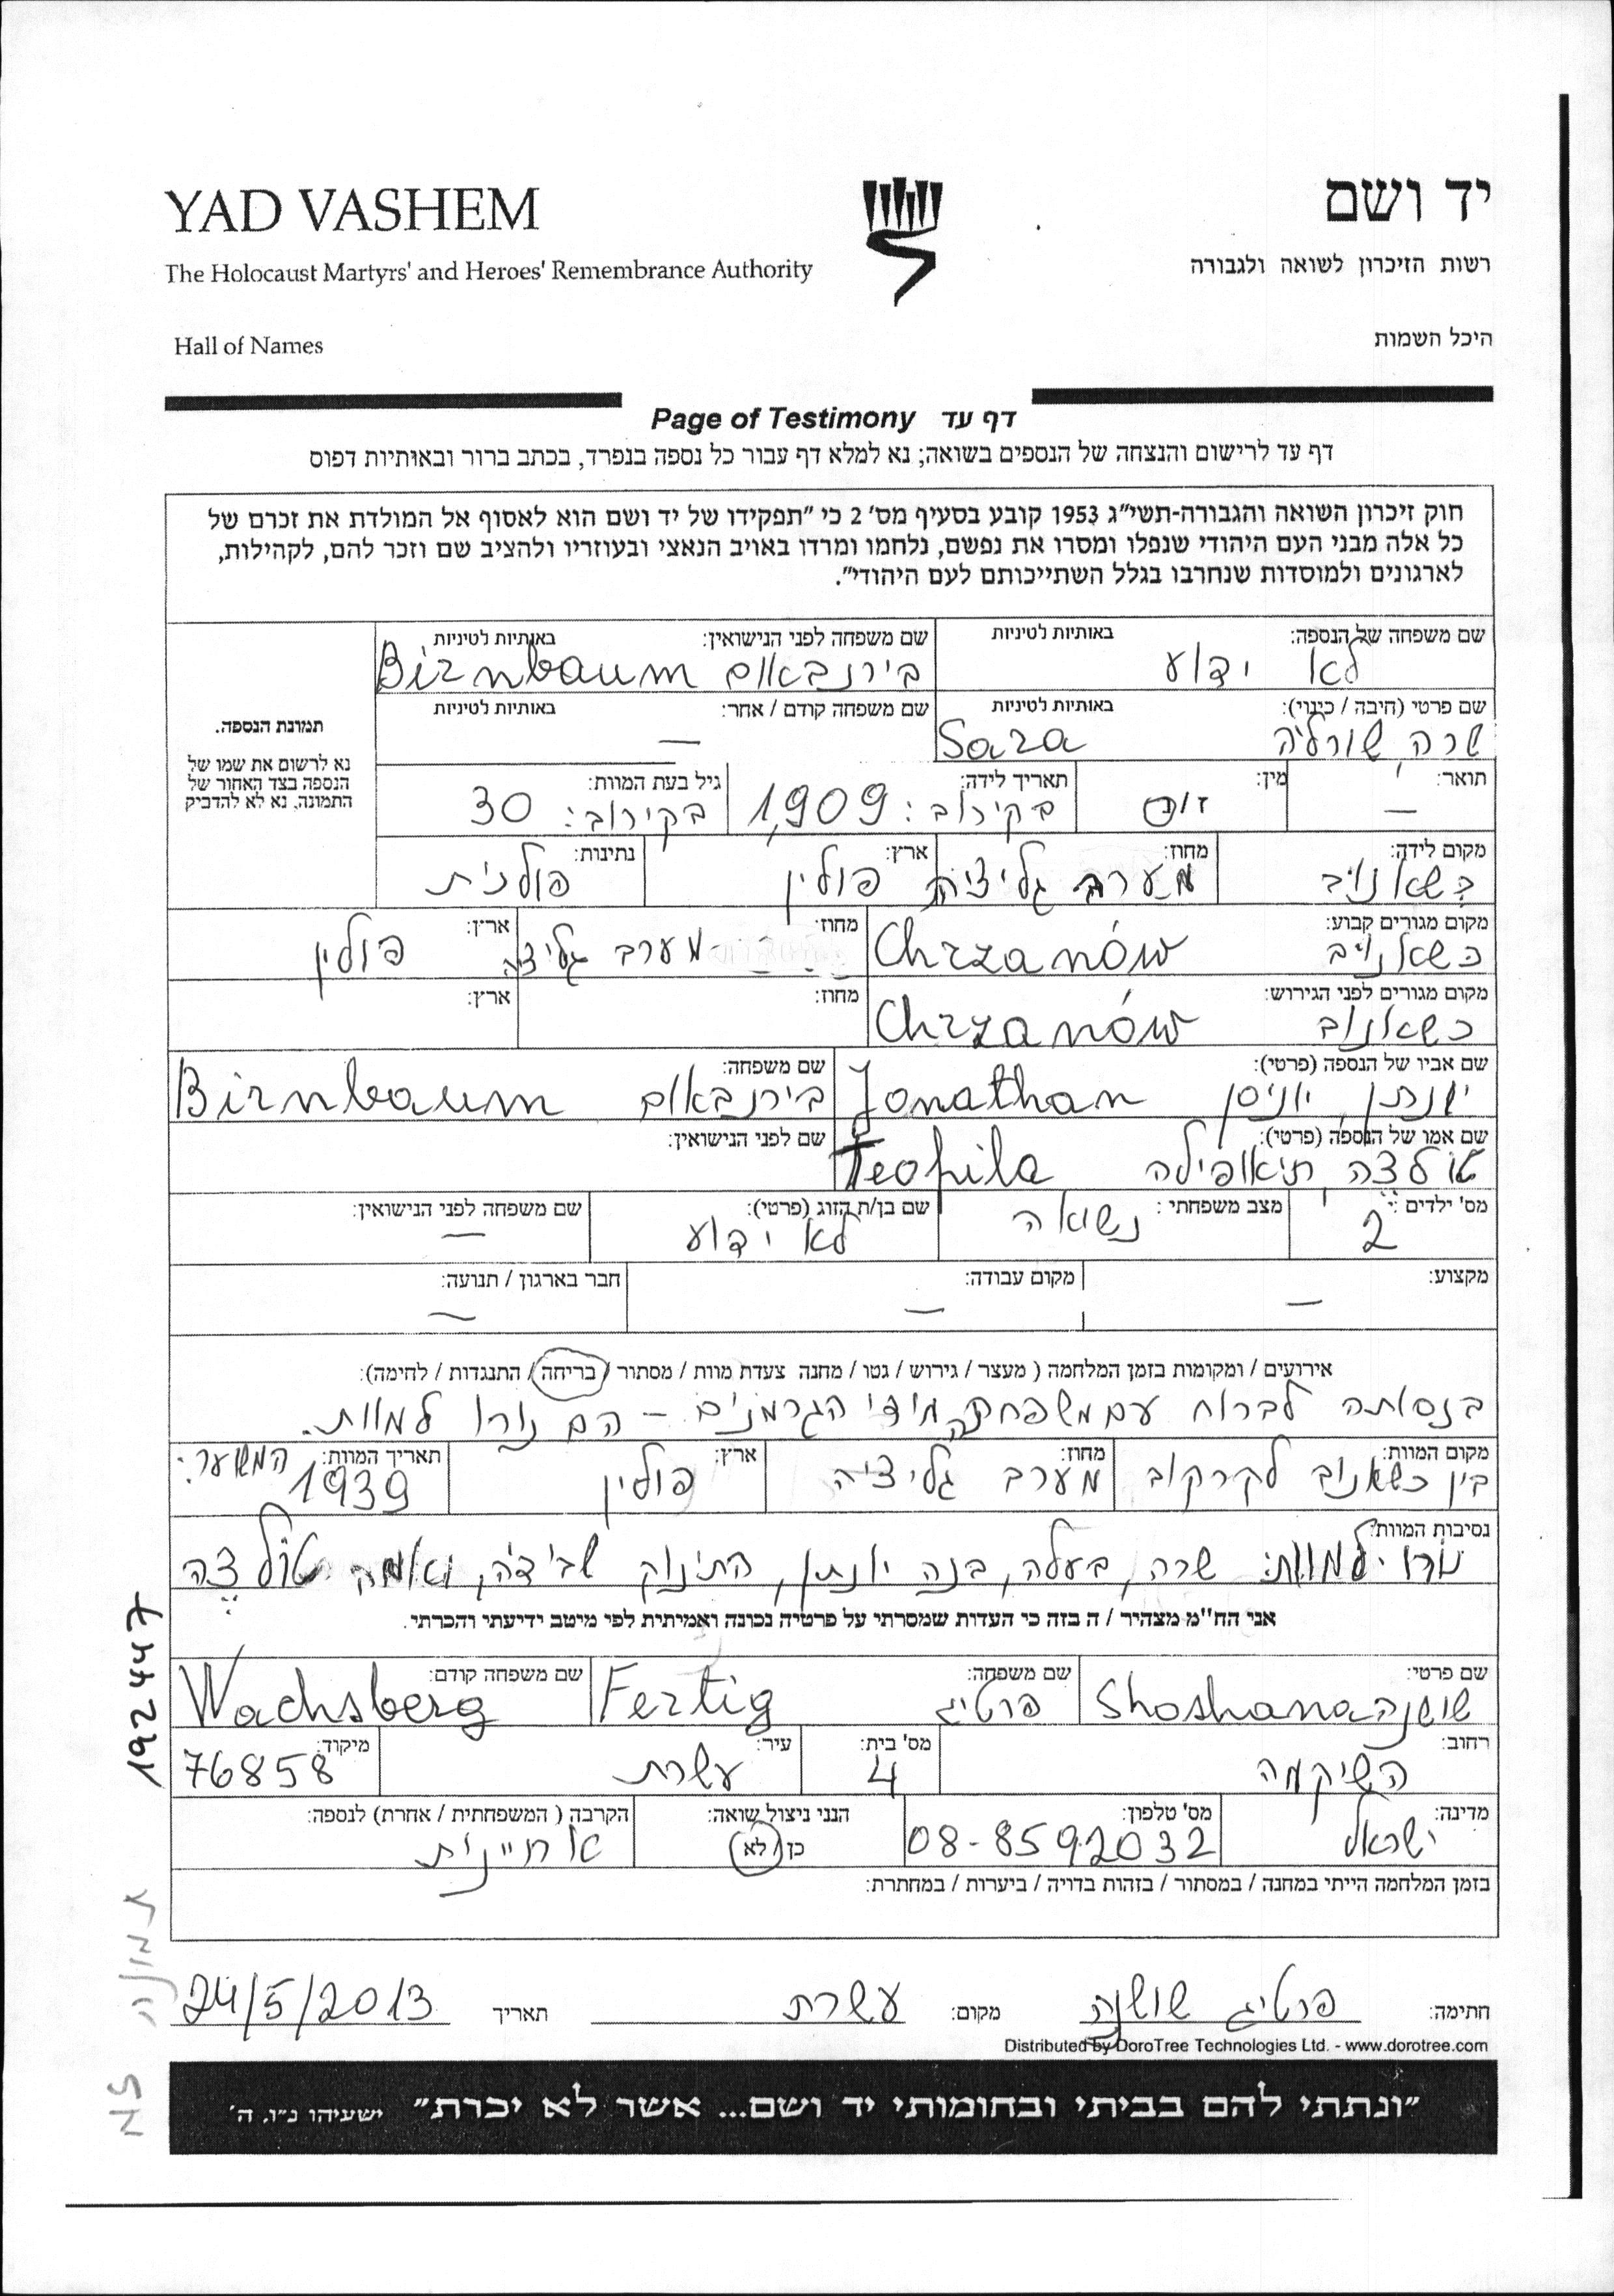 YAD VASHEM
יד ושם
The Holocaust Martyrs' and Heroes' Remembrance Authority
רשות הזיכרון לשואה ולגבורה
Hall of Names
היכל השמות
Page of Testimony דף עד
דף עד לרישום והנצחה של הנספים בשואה; נא למלא דף עבור כל נספה בנפרד, בכתב ברור ובאותיות דפוס
חוק זיכרון השואה והגבורה-תשי״ג 1953 קובע בסעיף מס׳ 2 כי ״תפקידו של יד ושם הוא לאסוף אל המולדת את זכרם של
כל אלה מבני העם היהודי שנפלו ומסרו את נפשם, נלחמו ומרדו באויב הנאצי ובעוזריו ולהציב שם וזכר להם, לקהילות,
לארגונים ולמוסדות שנחרבו בגלל השתייכותם לעם היהודי״.
שם משפחה של הנספה: באותיות לטיניות שם משפחה לפני הנישואין: באותיות לטיניות
לא ידוע בירנבאום Birnbaum
שם פרטי (חיבה / כינוי): באותיות לטיניות שם משפחה קודם / אחר: באותיות לטיניות
שרה שורליה Sara —
תמונת הנספה.
נא לרשום את שמו של
הנספה בצד האחור של
התמונה, נא לא להדביק
תואר: מין: תאריך לידה: גיל בעת המוות:
— זו נ בקירוב: 1,909 בקירוב: 30
מקום לידה: מחוז: ארץ: נתינות:
כשאנויב מערב גליציה פולין פולנית
מקום מגורים קבוע: מחוז: ארץ:
כשאנויב Chrzanów מערב גליציה פולין
מקום מגורים לפני הגירוש: מחוז: ארץ:
כשאנוב Chrzanów
שם אביו של הנספה (פרטי): שם משפחה:
יונתן, יוניסן Jonathan בירנבאום Birnbaum
שם אמו של הנספה (פרטי): שם לפני הנישואין:
טולצה, תיאופילה Teofila
מס' ילדים: מצב משפחתי: שם בן/ת הזוג (פרטי): שם משפחה לפני הנישואין:
2 נשואה לא ידוע —
מקצוע: מקום עבודה: חבר בארגון / תנועה:
— — —
אירועים / ומקומות בזמן המלחמה ( מעצר / גירוש / גטו / מחנה צעדת מוות / מסתור / בריחה / התנגדות / לחימה):
בנסותה לברוח עם משפחתה מידי הגרמנים – הם נורו למוות.
מקום המוות: מחוז: ארץ: תאריך המוות: המשוער:
בין כשאנוב לקרקוב מערב גליציה פולין 1939
נסיבות המוות:
נורו למוות: שרה, בעלה, בנה יונתן, התינוק שבידה, ואמה טולצה
אני הח"מ מצהיר / ה בזה כי העדות שמסרתי על פרטיה נכונה ואמיתית לפי מיטב ידיעתי והכרתי.
שם פרטי: שם משפחה: שם משפחה קודם:
שושנה Shoshana פרטיג Fertig Wachsberg
רחוב: מס' בית: עיר: מיקוד:
השיקמה 4 עשרת 76858
מדינה: מס' טלפון: הנני ניצול שואה: הקרבה ( המשפחתית / אחרת) לנספה:
ישראל 08-8592032 כן / לא אחיינית
בזמן המלחמה הייתי במחנה / במסתור / בזהות בדויה / ביערות / במחתרת:
חתימה: פרטיג שושנה מקום: עשרת תאריך 24/5/2013
Distributed by DoroTree Technologies Ltd. - www.dorotree.com
״ונתתי להם בביתי ובחומותי יד ושם... אשר לא יכרת״ ישעיהו נ״ו, ה׳
192447
תמונה
NS